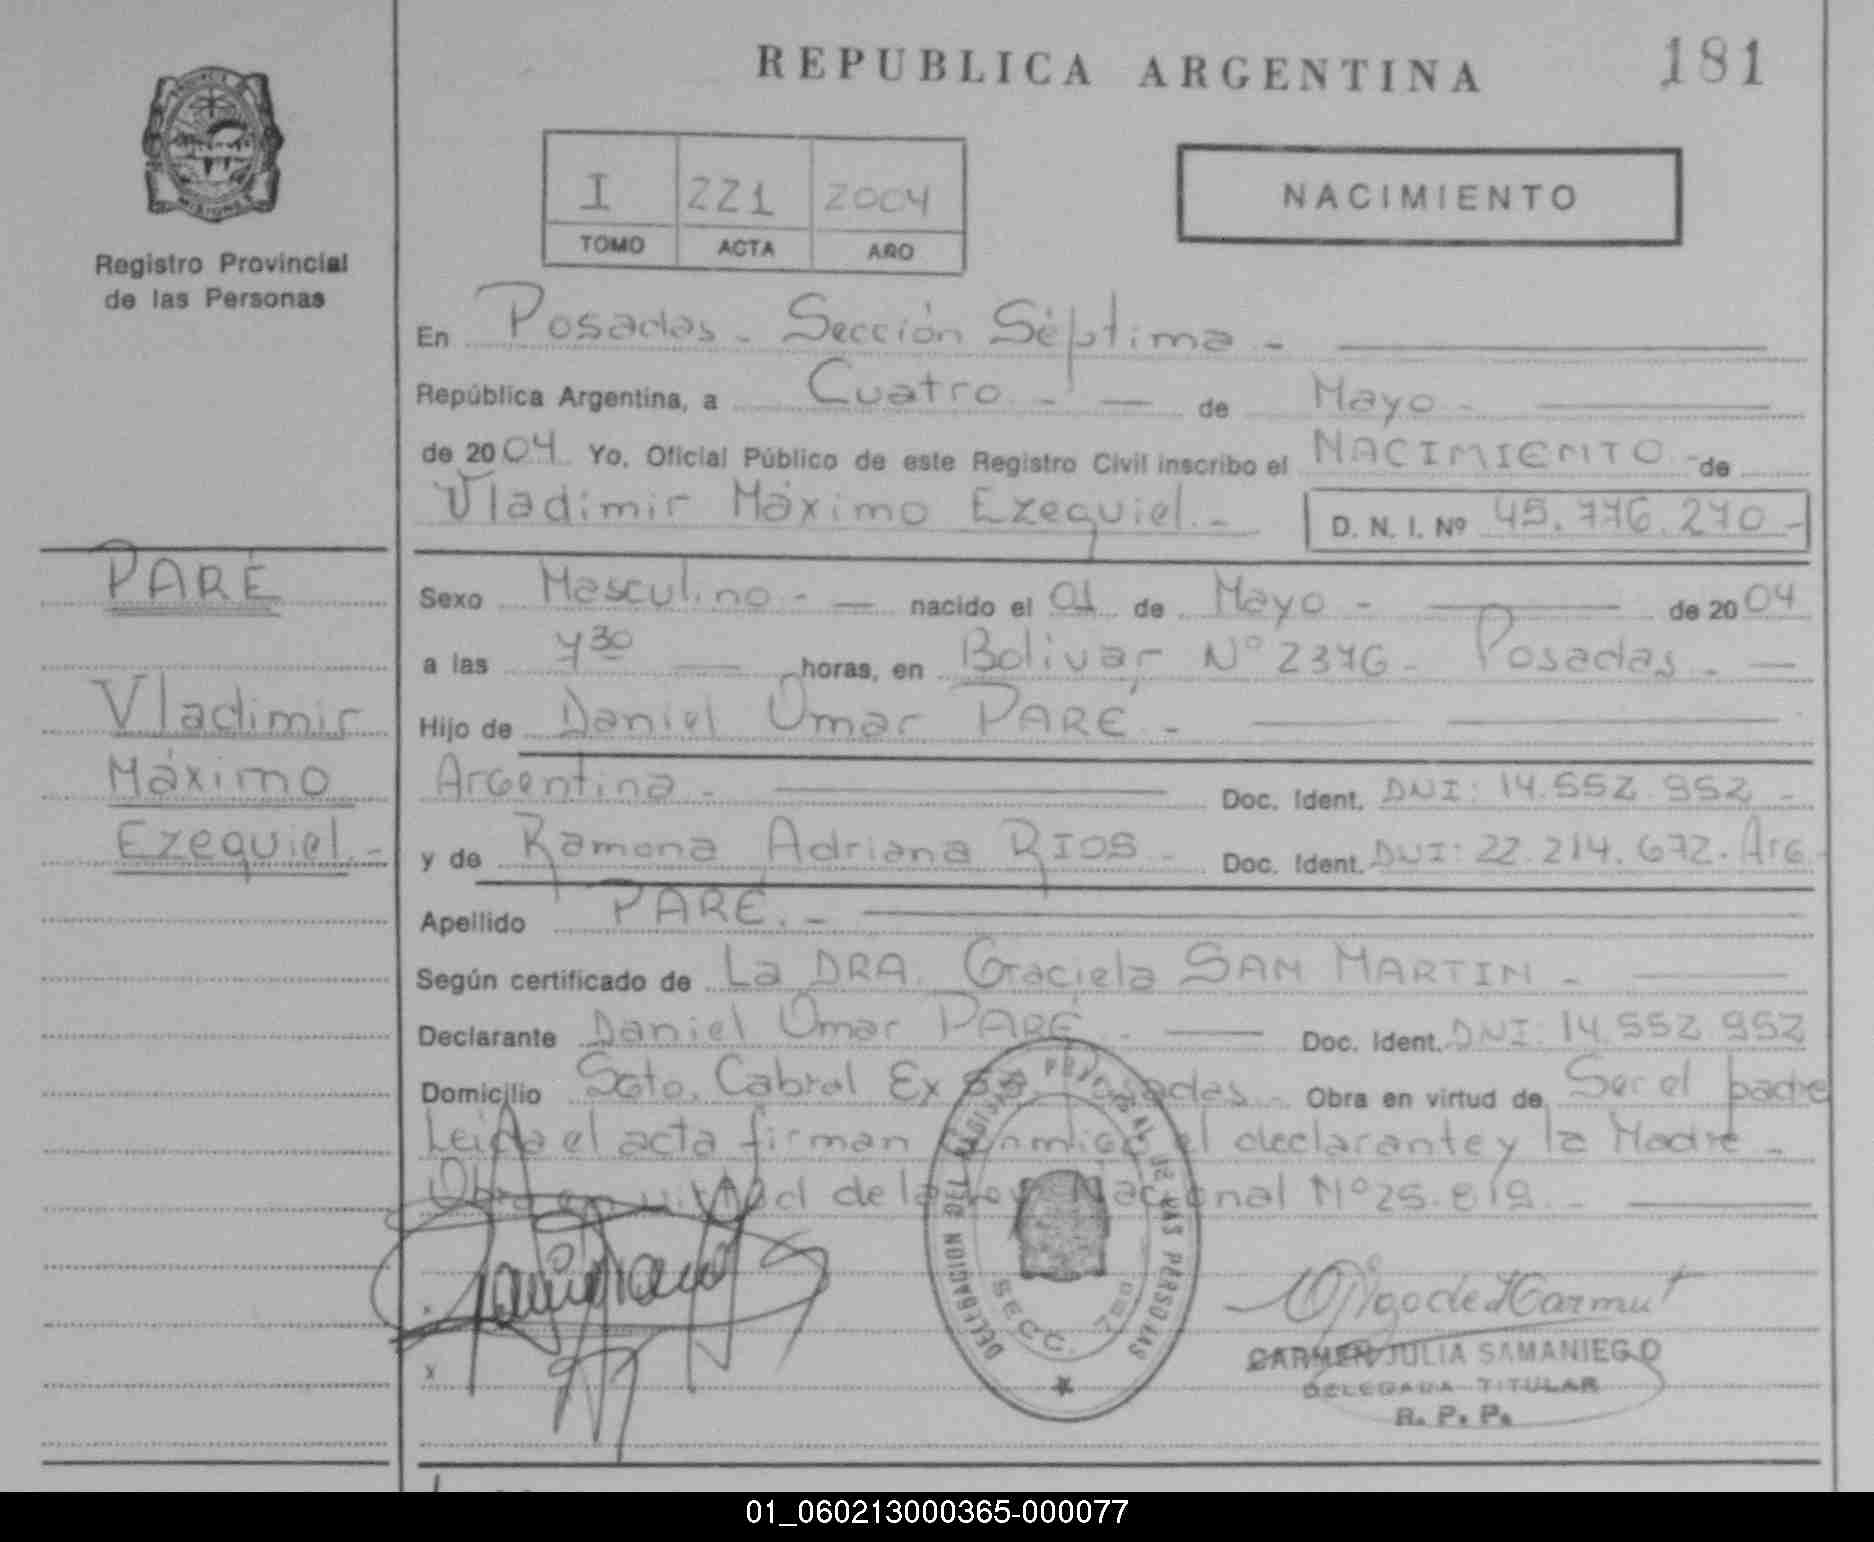 REPUBLICA ARGENTINA
181
PROVINCIA DE MISIONES
Registro Provincial
de las Personas
I 221 2004
TOMO ACTA AÑO
NACIMIENTO
En Posadas - Sección Séptima -
República Argentina, a Cuatro - de Mayo -
de 2004 Yo, Oficial Público de este Registro Civil inscribo el NACIMIENTO - de
Vladimir Máximo Ezequiel - D. N. I. Nº 45.776.270 -
PARÉ
Vladimir
Máximo
Ezequiel -
Sexo Masculino - nacido el 01 de Mayo - de 2004
a las 7 30 horas, en Bolívar Nº 2376 - Posadas -
Hijo de Daniel Omar PARÉ -
Argentina - Doc. Ident. DNI: 14.552.952 -
y de Ramona Adriana RIOS - Doc. Ident. DNI: 22.214.672. Arg.
Apellido PARÉ. -
Según certificado de La DRA. Graciela SAN MARTIN -
Declarante Daniel Omar PARÉ - Doc. Ident. DNI: 14.552.952
Domicilio Sgto. Cabral Ex Posadas - Obra en virtud de Ser el padre
Leida el acta firman conmigo el declarante y la Madre -
Obra en virtud de la Ley Nacional Nº 25.819. -
DELEGACION DEL REGISTRO PROVINCIAL DE LAS PERSONAS
SECC. 7ma
CARMEN JULIA SAMANIEGO
DELEGADA TITULAR
R. P. P.
01_060213000365-000077